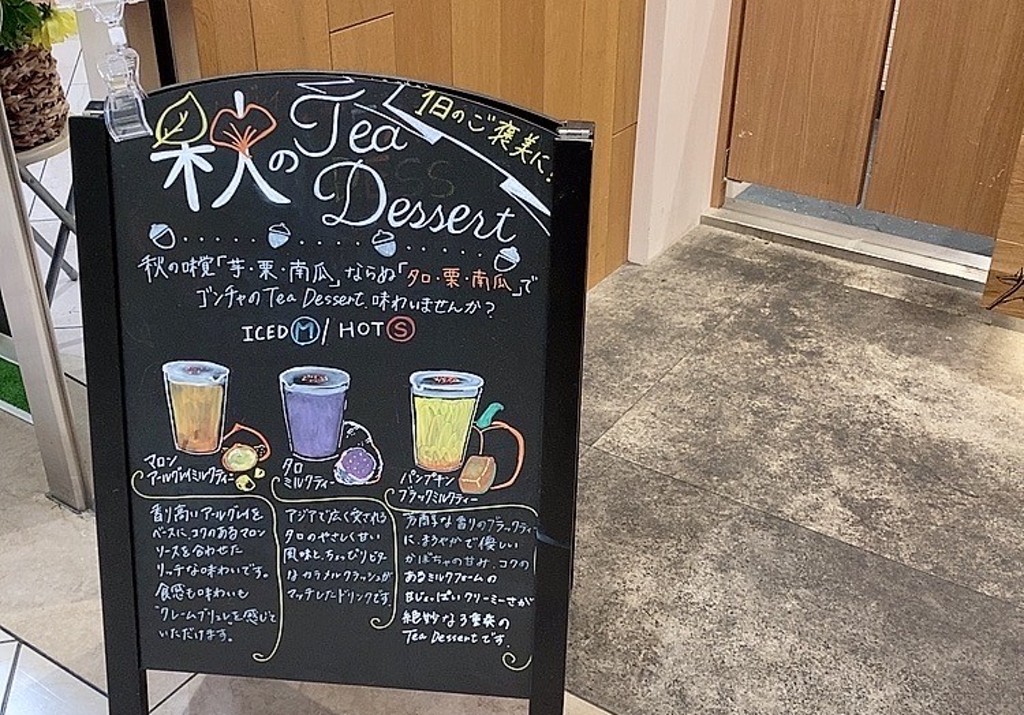 1日のご褒美に!
秋のTea
Dessert
秋の味覚「芋・栗・南瓜」ならぬ「タロ・栗・南瓜」で
ゴンチャのTea Dessert 味わいませんか?
ICED Ⓜ/HOT Ⓢ
マロン
アールグレイミルクティー
香り高いアールグレイを
ベースに、コクのあるマロン
ソースを合わせた
リッチな味わいです。
食感も味わいも
"クレームブリュレ"を感じて
いただけます。
タロ
ミルクティー
アジアで広く愛される
タロのやさしく甘い
風味と、ちょっぴりビター
なカラメルクラッシュが
マッチしたドリンクです。
パンプキン
ブラックミルクティー
芳醇な香りのブラックティー
に、まろやかで優しい
かぼちゃの甘み、コクの
あるミルクフォームの
甘じょっぱいクリーミーさが
絶妙な3重奏の
Tea Dessertです。